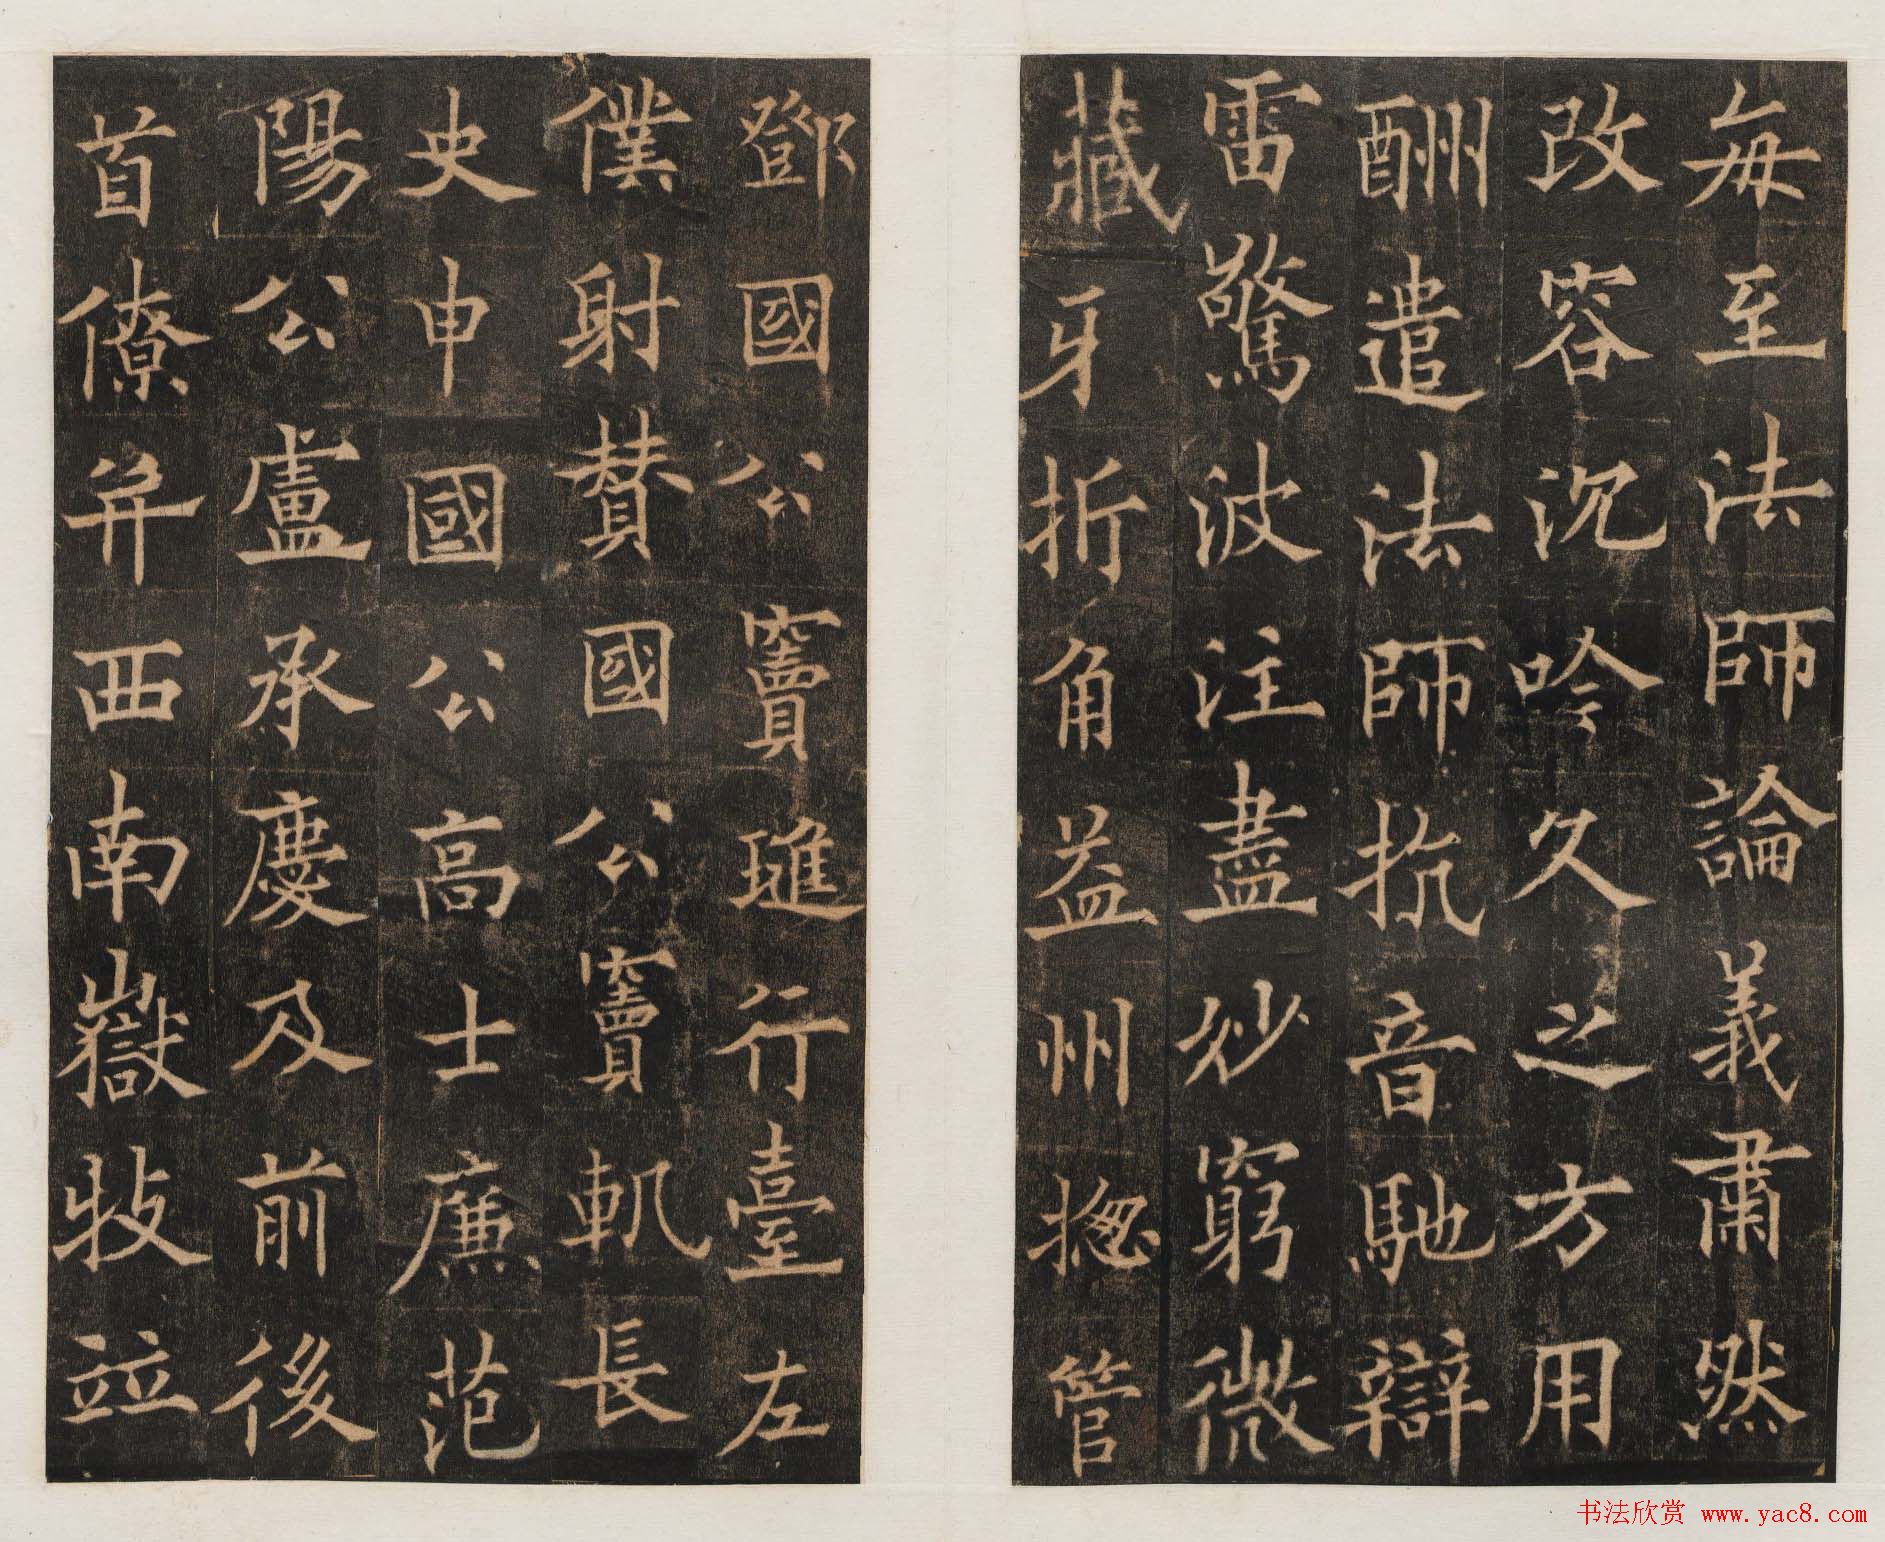 每至法師論義肅然
改容沉吟久之方用
酬遣法師抗音馳辯
雷驚波注盡妙窮微
藏牙折角益州摠管
鄧國公竇璡行臺左
僕射賛國公竇軌長
史申國公高士廉范
陽公盧承慶及前後
首僚并西南嶽牧竝
书法欣赏 www.yac8.com